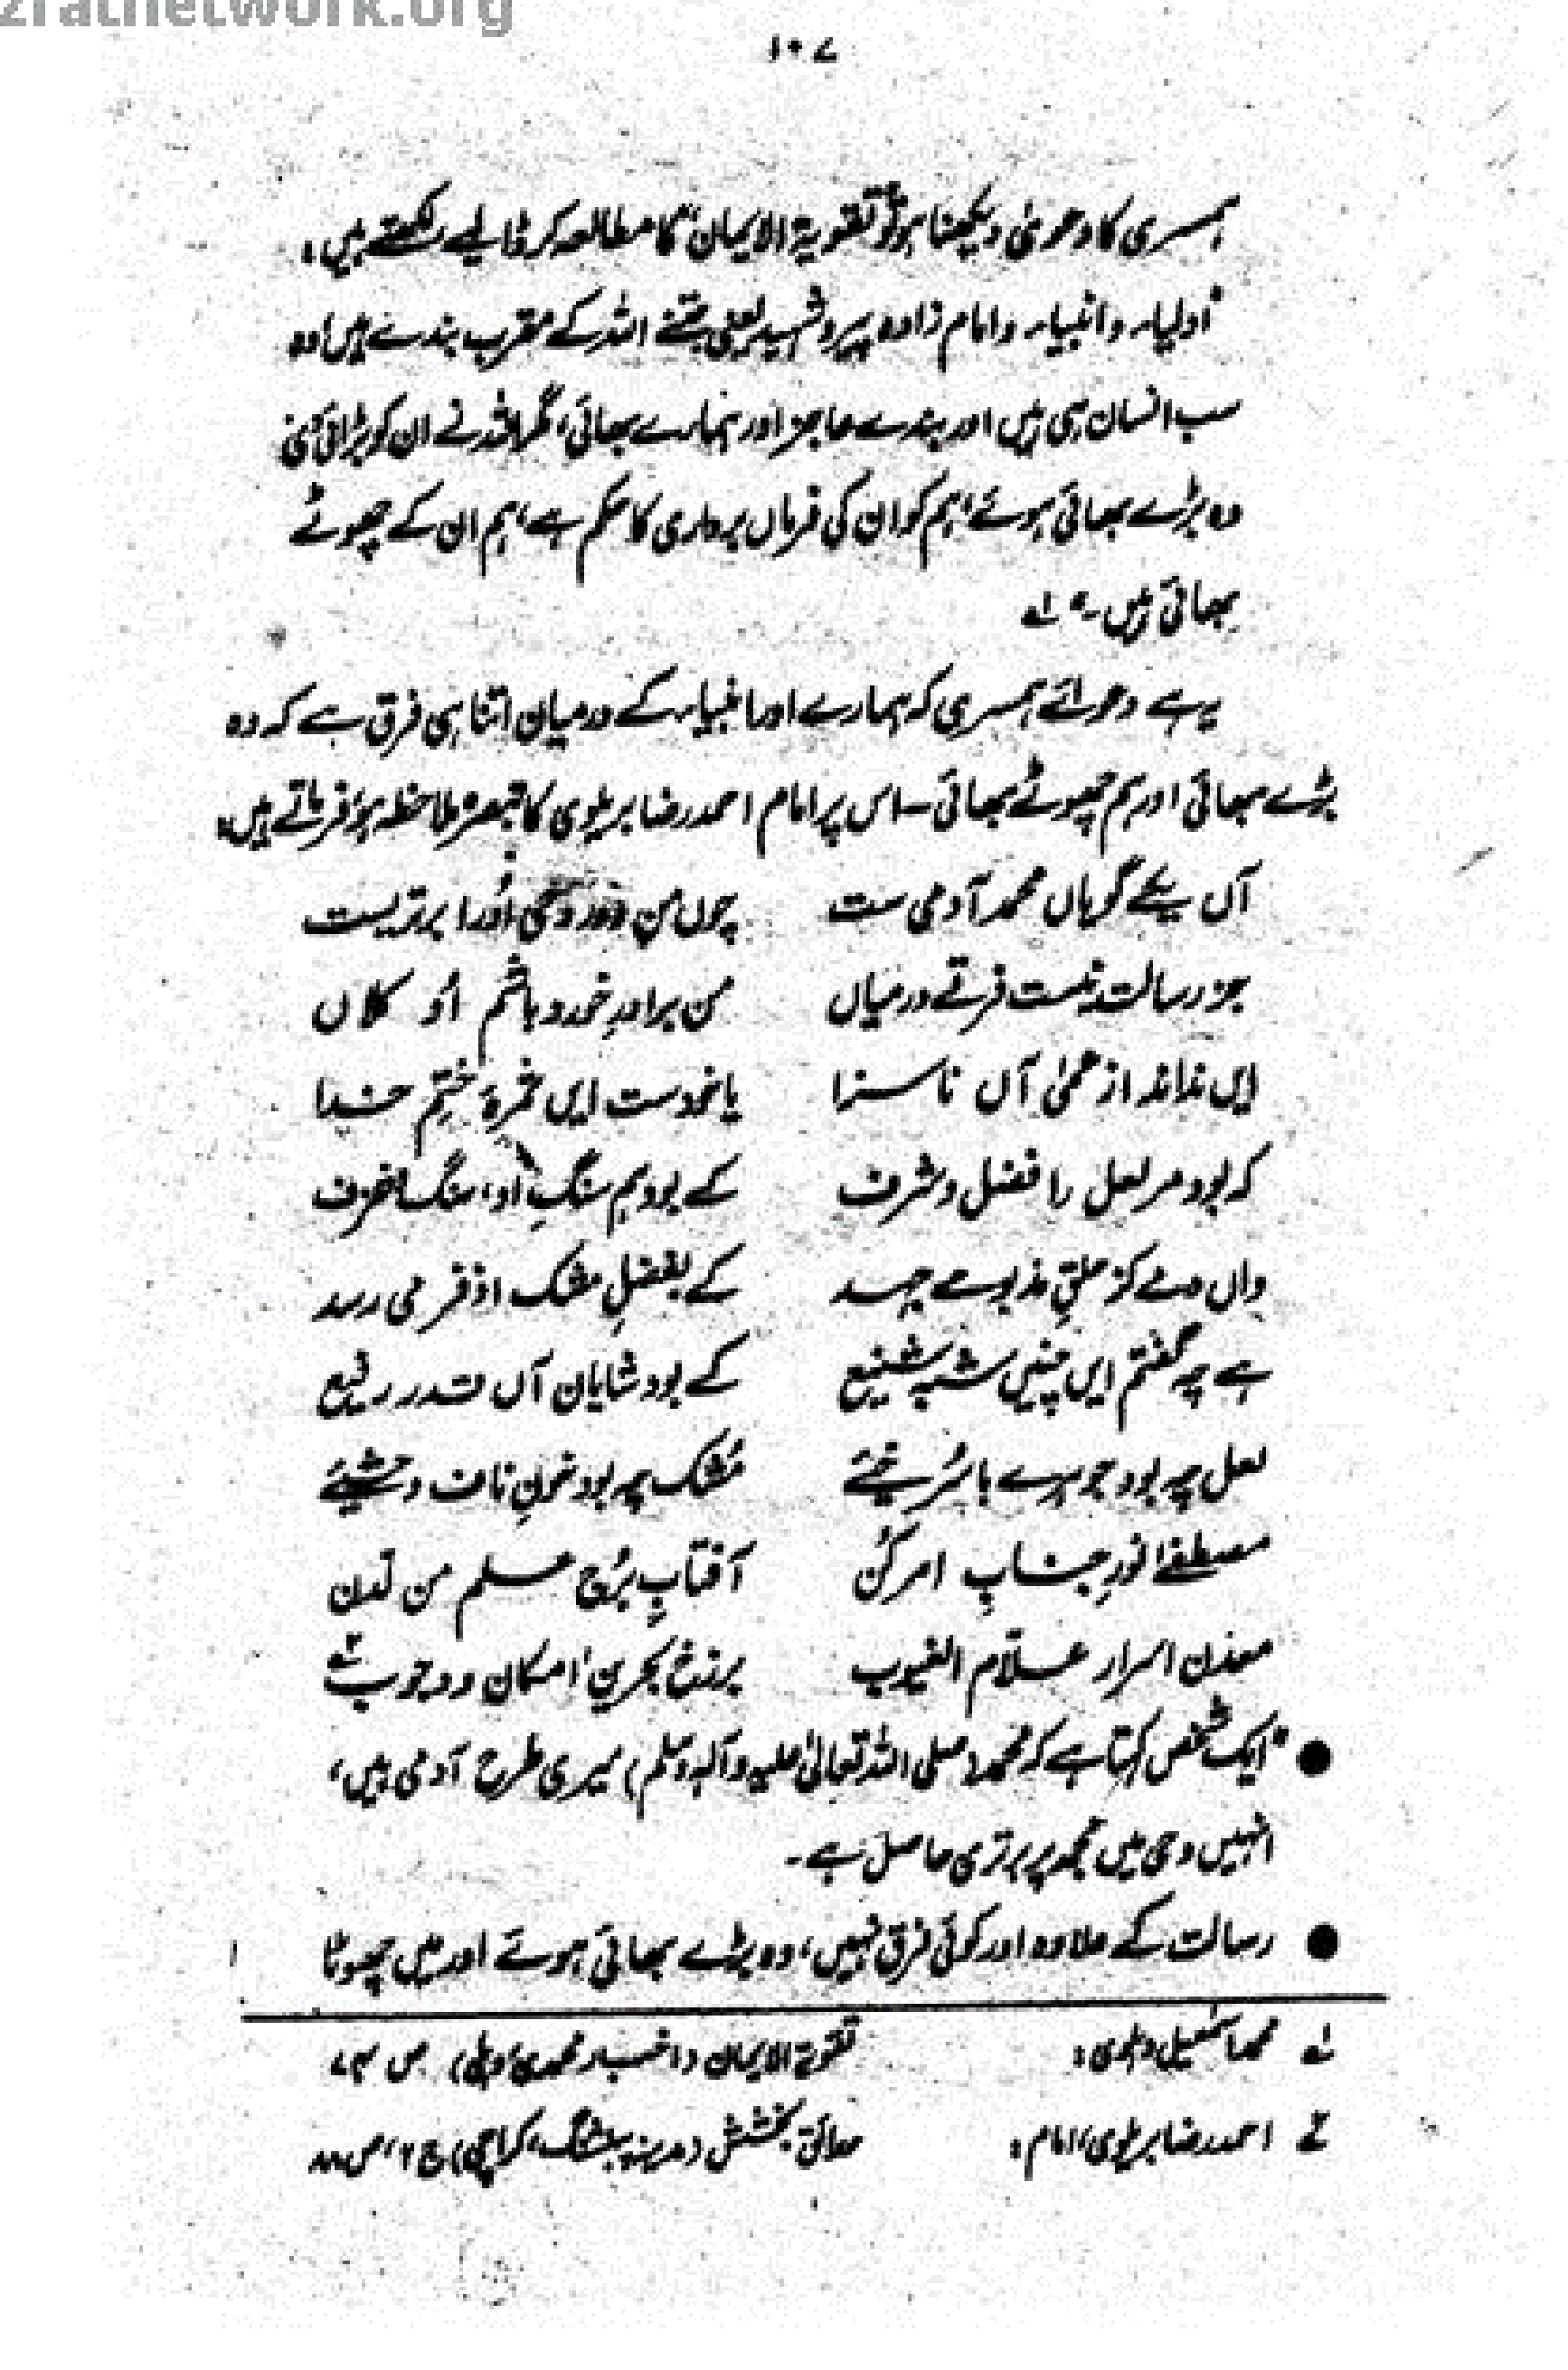 zratnetwork.org
۱۰۷
ہمسری کا دعویٰ دیکھنا ہو تو "تقویۃ الایمان" کا مطالعہ کر ڈالیے لکھتے ہیں،
"اولیاء و انبیاء و امام زادہ پیر و شہید یعنی جتنے اللہ کے مقرب بندے ہیں اور وہ
سب انسان ہی ہیں اور بندے عاجز اور ہمارے بھائی، مگر اللہ نے ان کو بڑائی دی
وہ بڑے بھائی ہوئے، ہم کو ان کی فرماں برداری کا حکم ہے، ہم ان کے چھوٹے
بھائی ہیں۔" لہ
یہ ہے دعوائے ہمسری کہ ہمارے اور انبیاء کے درمیان اتنا ہی فرق ہے کہ وہ
بڑے بھائی اور ہم چھوٹے بھائی۔ اس پر امام احمد رضا بریلوی کا تبصرہ ملاحظہ ہو، فرماتے ہیں:
آں یکے گویاں محمد آدمی ست چوں من و در وحی اُو را برتریست
جز رسالت نیست فرقے درمیاں من برادرِ خورد باشم اُو کلاں
ایں نداند از عمیٰ آں ناسزا یا خودست ایں ثمرۂ ختمِ خدا
کہ بود مر لعل را فضل و شرف کے بود ہم سنگِ او، سنگ و خزف
واں دمے کز حلقِ مذبوحے جہد کے بفضلِ مشک اذفر می رسد
ہے چہ گفتم ایں چنیں شبہِ شنیع کے بود شایان آں قدر رفیع
لعل چہ بود جوہرے با سُرخیئے مُشک چہ بود خونِ ناف وحشیئے
مصطفےٰ نورِ جنابِ امر کُن آفتابِ بُرج علم من لدن
معدن اسرار علّام الغیوب برزخ بحرینِ امکان و وجوب ٢ے
● "ایک شخص کہتا ہے کہ محمد (صلی اللہ تعالیٰ علیہ وآلہ وسلم) میری طرح آدمی ہیں،
انہیں وحی میں مجھ پر برتری حاصل ہے۔
● رسالت کے علاوہ اور کوئی فرق نہیں، وہ بڑے بھائی ہوئے اور میں چھوٹا
لہ محمد اسمٰعیل دہلوی: تقویۃ الایمان (اخبار محمدی، دہلی) ص
٢ے احمد رضا بریلوی، امام: حدائق بخشش (مدینہ پبلشنگ، کراچی) ج ٢، ص